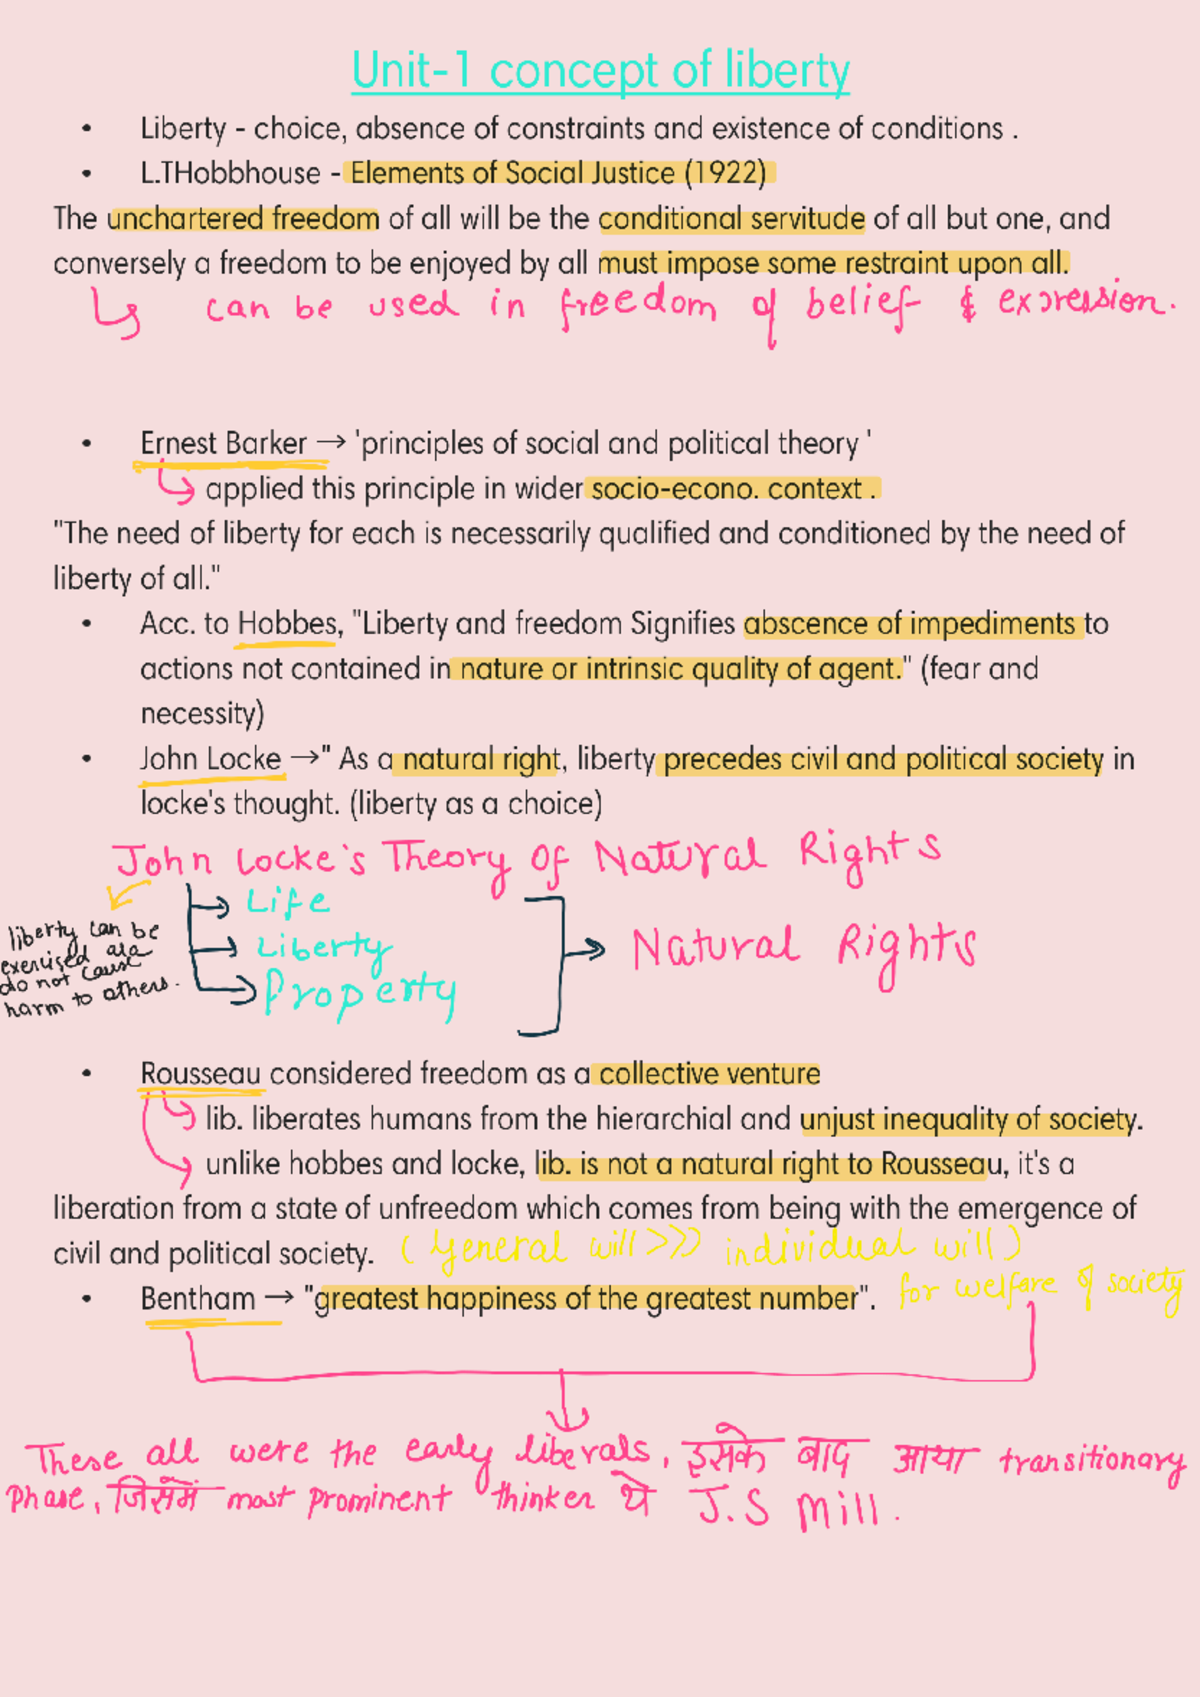 Unit-1 concept of liberty
• Liberty - choice, absence of constraints and existence of conditions .
• L.THobbhouse - Elements of Social Justice (1922)
The unchartered freedom of all will be the conditional servitude of all but one, and
conversely a freedom to be enjoyed by all must impose some restraint upon all.
↳ can be used in freedom of belief & expression.
• Ernest Barker → 'principles of social and political theory '
↳ applied this principle in wider socio-econo. context .
"The need of liberty for each is necessarily qualified and conditioned by the need of
liberty of all."
• Acc. to Hobbes, "Liberty and freedom Signifies abscence of impediments to
actions not contained in nature or intrinsic quality of agent." (fear and
necessity)
• John Locke →" As a natural right, liberty precedes civil and political society in
locke's thought. (liberty as a choice)
John Locke's Theory Of Natural Rights
→ Life
→ Liberty
→ Property
→ Natural Rights
liberty can be
exercised
do not cause
harm to others.
• Rousseau considered freedom as a collective venture
↳ lib. liberates humans from the hierarchial and unjust inequality of society.
unlike hobbes and locke, lib. is not a natural right to Rousseau, it's a
liberation from a state of unfreedom which comes from being with the emergence of
civil and political society. (General will >>> individual will)
for welfare of society
• Bentham → "greatest happiness of the greatest number".
These all were the early liberals, इसके बाद आया transitionary
phase, जिसमें most prominent thinker थे J.S Mill.